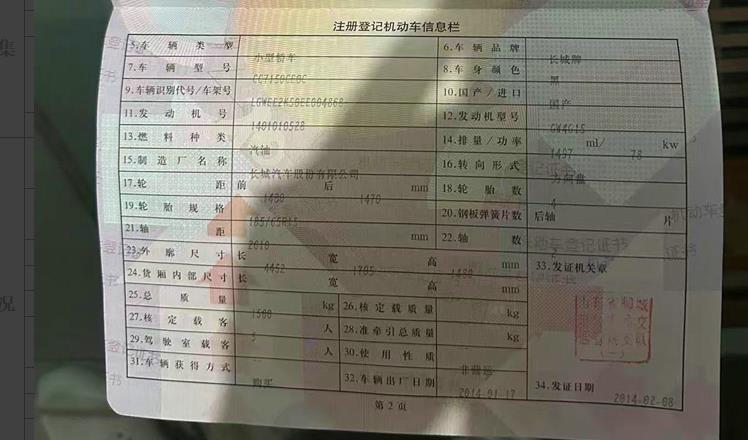 集
况
注册登记机动车信息栏
5.车辆类型 小型轿车 6.车辆品牌 长城牌
7.车辆型号 CC7150CE0C 8.车身颜色 黑
9.车辆识别代号/车架号 10.国产/进口 国产
11.发动机号 1401010528 12.发动机型号 GW4G15
13.燃料种类 汽油 14.排量/功率 1497 ml/ 78 kw
15.制造厂名称 长城汽车股份有限公司 16.转向形式 方向盘
17.轮距 前 1480 后 1470 mm 18.轮胎数 4
19.轮胎规格 185/65R15 20.钢板弹簧片数 后轴 片
21.轴距 2610 mm 22.轴数
23.外廓尺寸 长 4452 宽 1705 高 1480 mm 33.发证机关章
24.货厢内部尺寸 长 宽 高 mm
25.总质量 1500 kg 26.核定载质量 kg
27.核定载客 5 人 28.准牵引总质量 kg
29.驾驶室载客 人 30.使用性质 非营运
31.车辆获得方式 购买 32.车辆出厂日期 2014-01-17 34.发证日期 2014-02-08
第2页